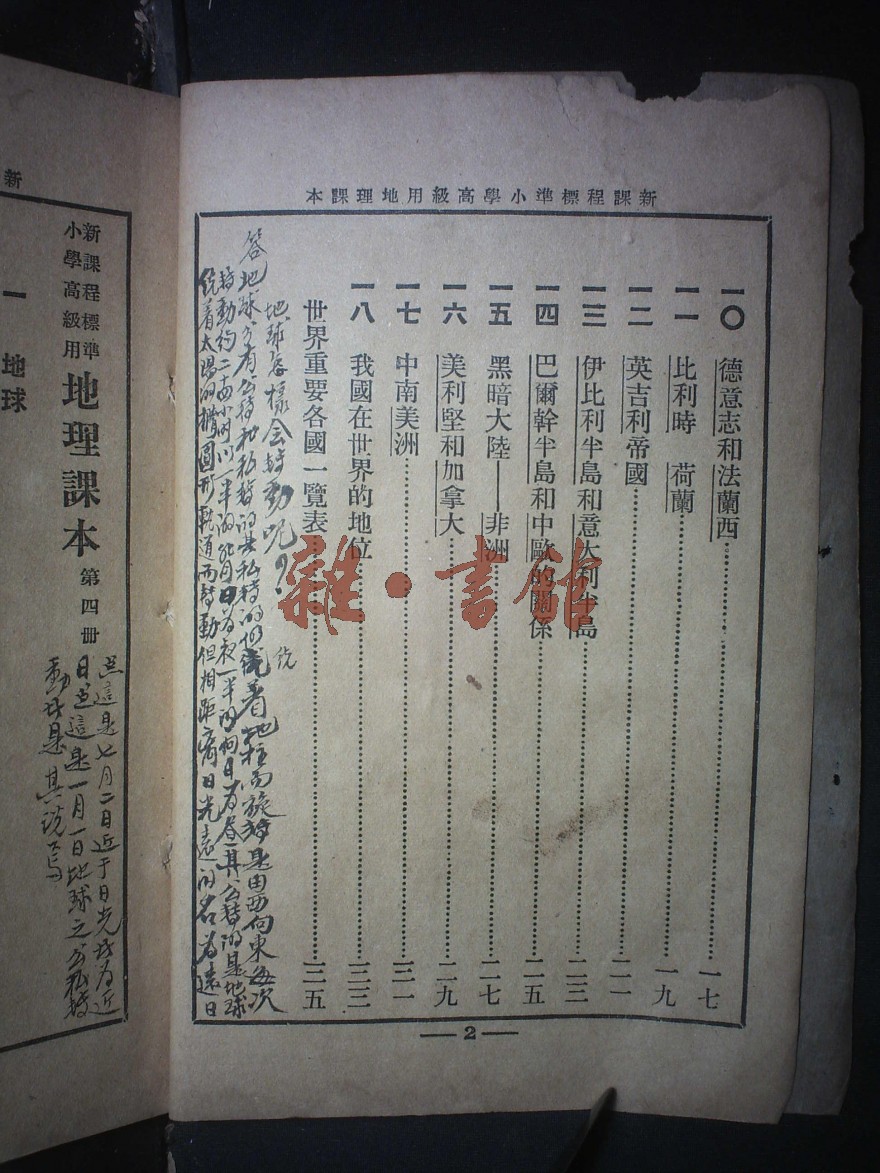 新課程標準小學高級用地理課本
一〇 德意志和法蘭西 一七
一一 比利時 荷蘭 一九
一二 英吉利帝國 二一
一三 伊比利半島和意大利半島 二三
一四 巴爾幹半島和中歐的關係 二五
一五 黑暗大陸——非洲 二七
一六 美利堅和加拿大 二九
一七 中南美洲 三一
一八 我國在世界的地位 三三
世界重要各國一覽表 三五
地球怎樣會轉動呢？
答地球分有公轉和私轉的其私轉的仍繞着地柱而旋轉是由西向東每次
繞
轉動約二十四小時以一半的背日為夜一半的向日為昼其公轉的是地球
繞着太陽的橢圓形軌道而轉動但相距離日光遠的名為遠日
—2—
雜·書館
新
新課程標準
小學高級用
地理課本 第四冊
點這是七月二日近于日光者為近
日點這是一月一日地球之公私轉
動者是其說焉
一 地球